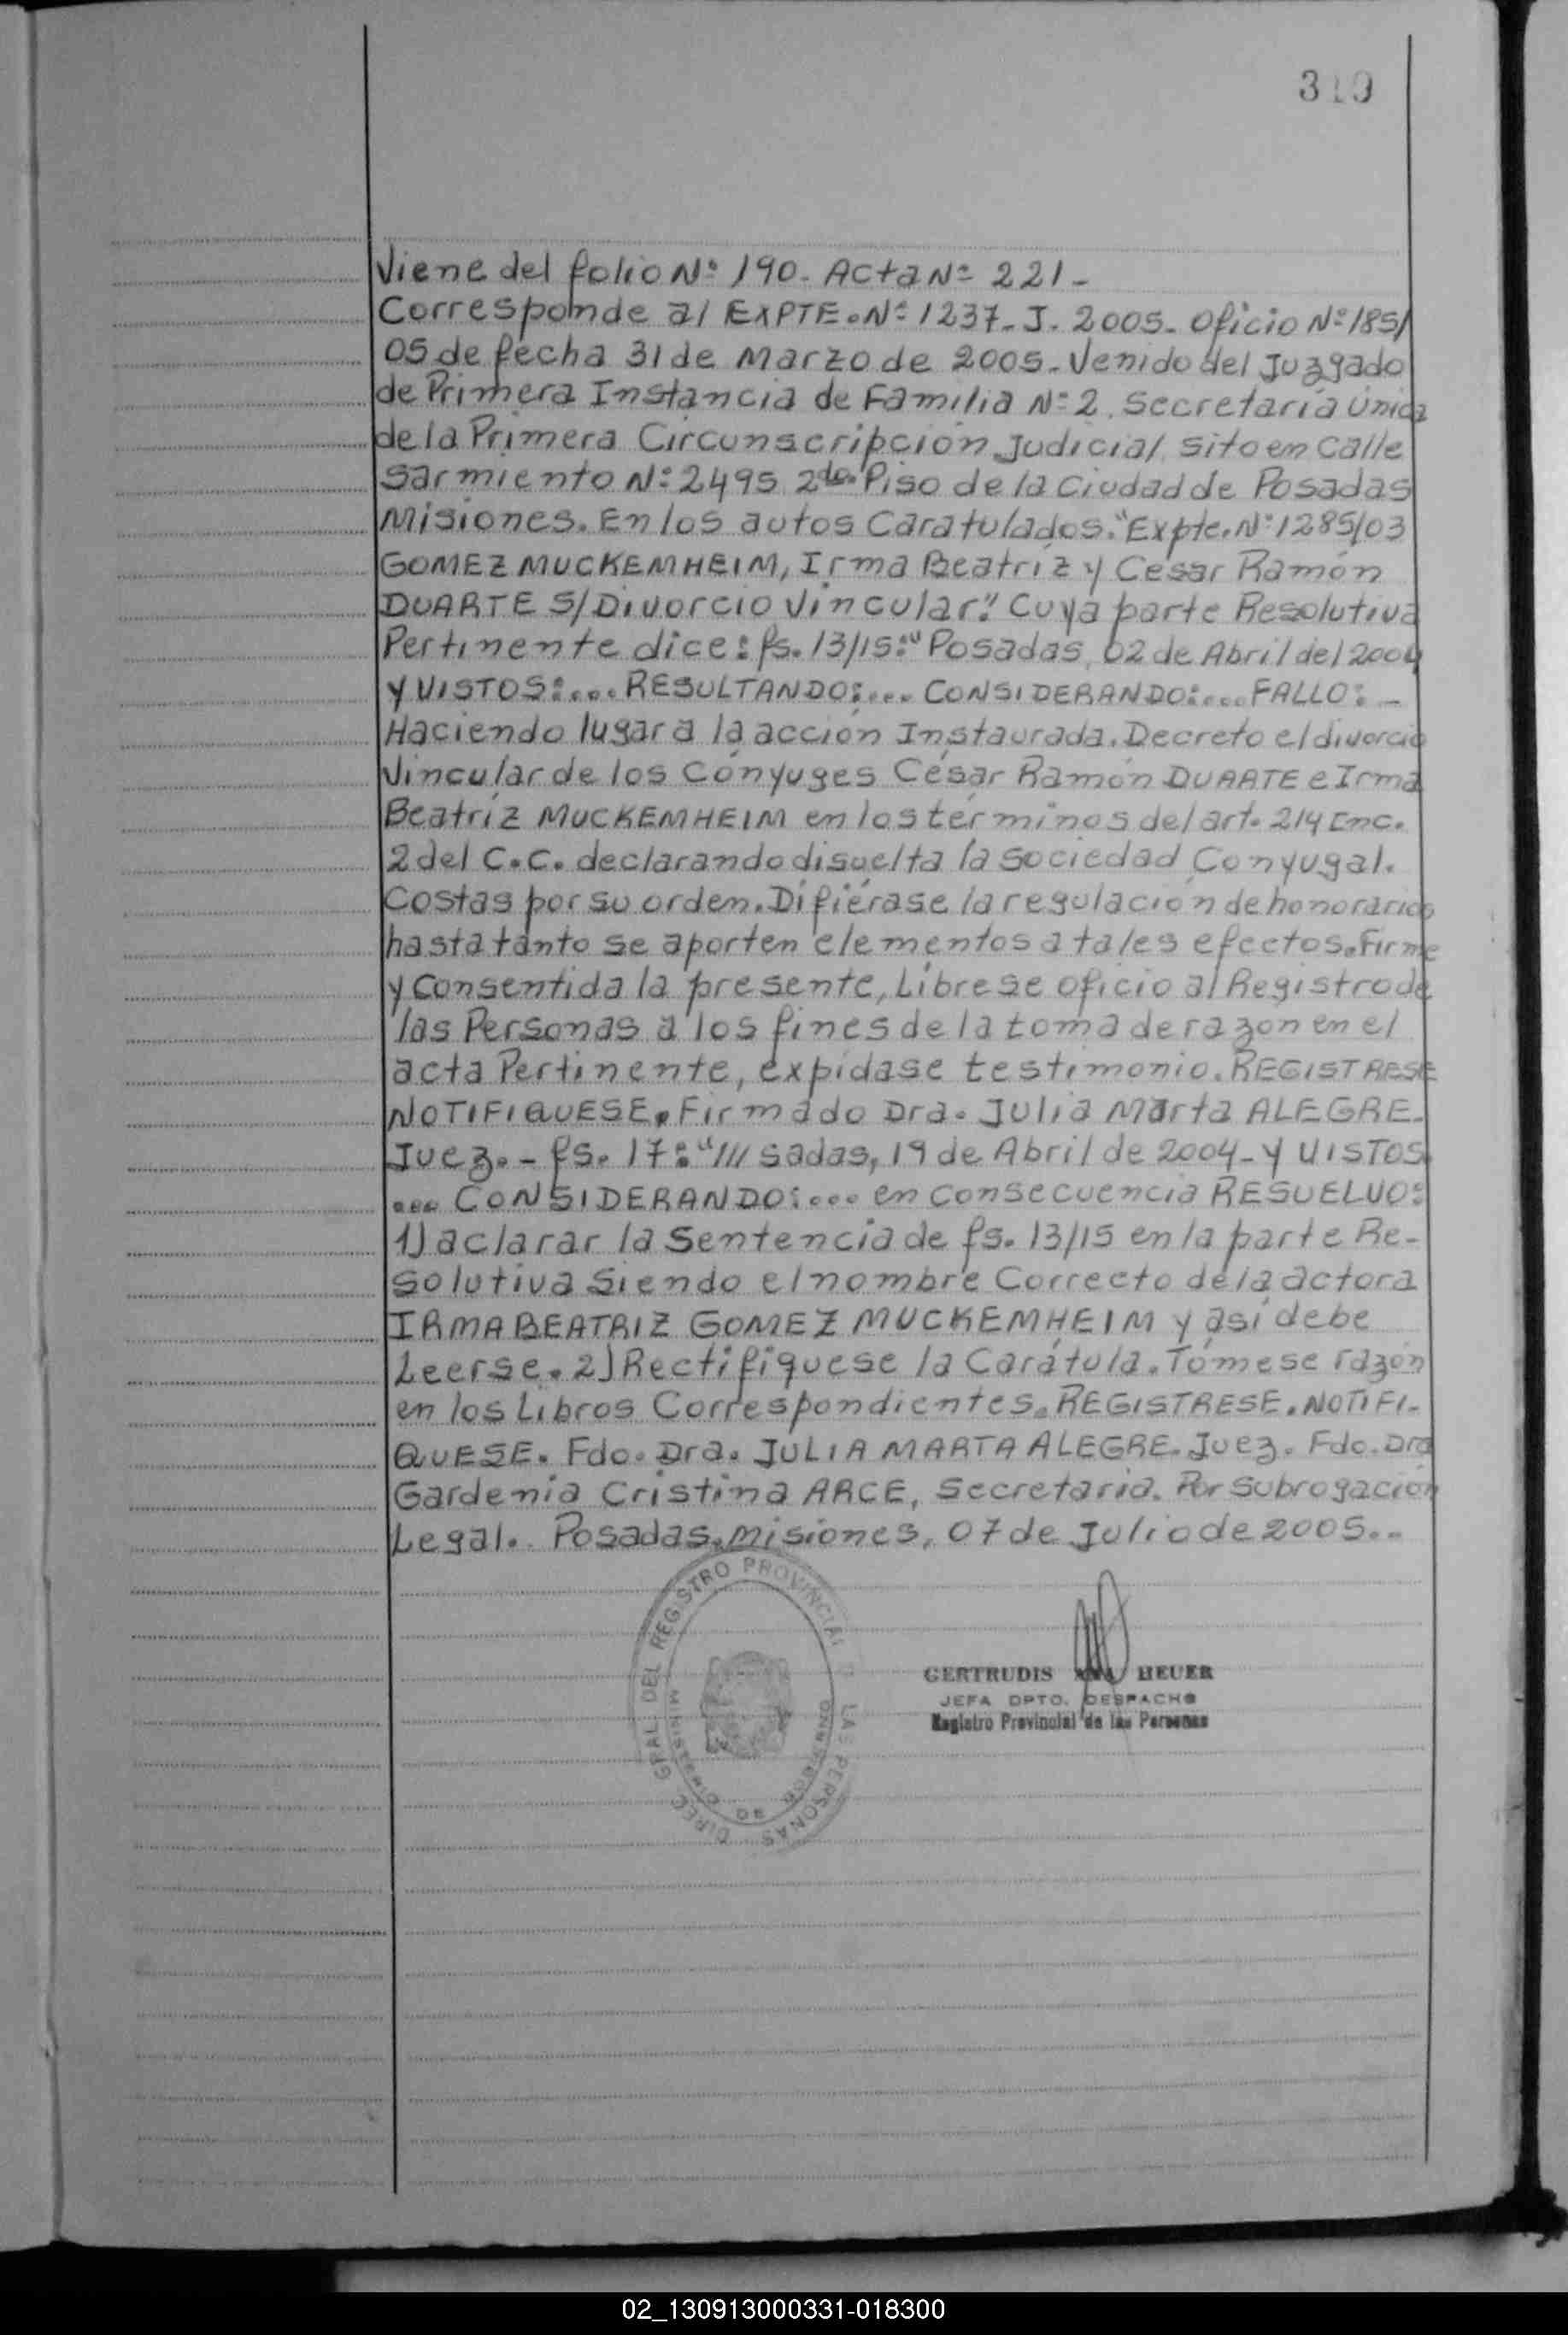 310
Viene del folio Nº 190. Acta Nº 221-
Corresponde al EXPTE. Nº 1237. J. 2005. Oficio Nº 185/
05 de fecha 31 de Marzo de 2005. Venido del Juzgado
de Primera Instancia de Familia Nº 2. Secretaría Única
de la Primera Circunscripción Judicial sito en Calle
Sarmiento Nº 2495 2do. Piso de la Ciudad de Posadas
Misiones. En los autos Caratulados: "Expte. Nº 1285/03
GOMEZ MUCKEMHEIM, Irma Beatriz y Cesar Ramón
DUARTE S/Divorcio Vincular". Cuya parte Resolutiva
Pertinente dice: fs. 13/15: "Posadas, 02 de Abril del 2004
y VISTOS:... RESULTANDO:... CONSIDERANDO:... FALLO: -
Haciendo lugar a la acción Instaurada. Decreto el divorcio
Vincular de los Cónyuges César Ramón DUARTE e Irma
Beatríz MUCKEMHEIM en los términos del art. 214 Inc.
2 del C.C. declarando disuelta la sociedad Conyugal.
Costas por su orden. Difiérase la regulación de honorarios
hasta tanto se aporten elementos a tales efectos. Firme
y Consentida la presente, Líbrese oficio al Registro de
las Personas a los fines de la toma de razón en el
acta Pertinente, expídase testimonio. REGISTRESE
NOTIFIQUESE. Firmado Dra. Julia Marta ALEGRE.
Juez. - fs. 17: "///sadas, 19 de Abril de 2004 - y VISTOS
... CONSIDERANDO:... en Consecuencia RESUELVO:
1) aclarar la Sentencia de fs. 13/15 en la parte Re-
solutiva Siendo el nombre Correcto de la actora
IRMA BEATRIZ GOMEZ MUCKEMHEIM y así debe
Leerse. 2) Rectifíquese la Carátula. Tómese razón
en los Libros Correspondientes. REGISTRESE. NOTIFI-
QUESE. Fdo. Dra. JULIA MARTA ALEGRE. Juez. Fdo. Dra
Gardenia Cristina ARCE, Secretaria. Por Subrogación
Legal. Posadas, Misiones, 07 de Julio de 2005..
DIREC GRAL DEL REGISTRO PROVINCIAL LAS PERSONAS
GERTRUDIS HEUER
JEFA DPTO. DESPACHO
Registro Provincial de las Personas
02_130913000331-018300